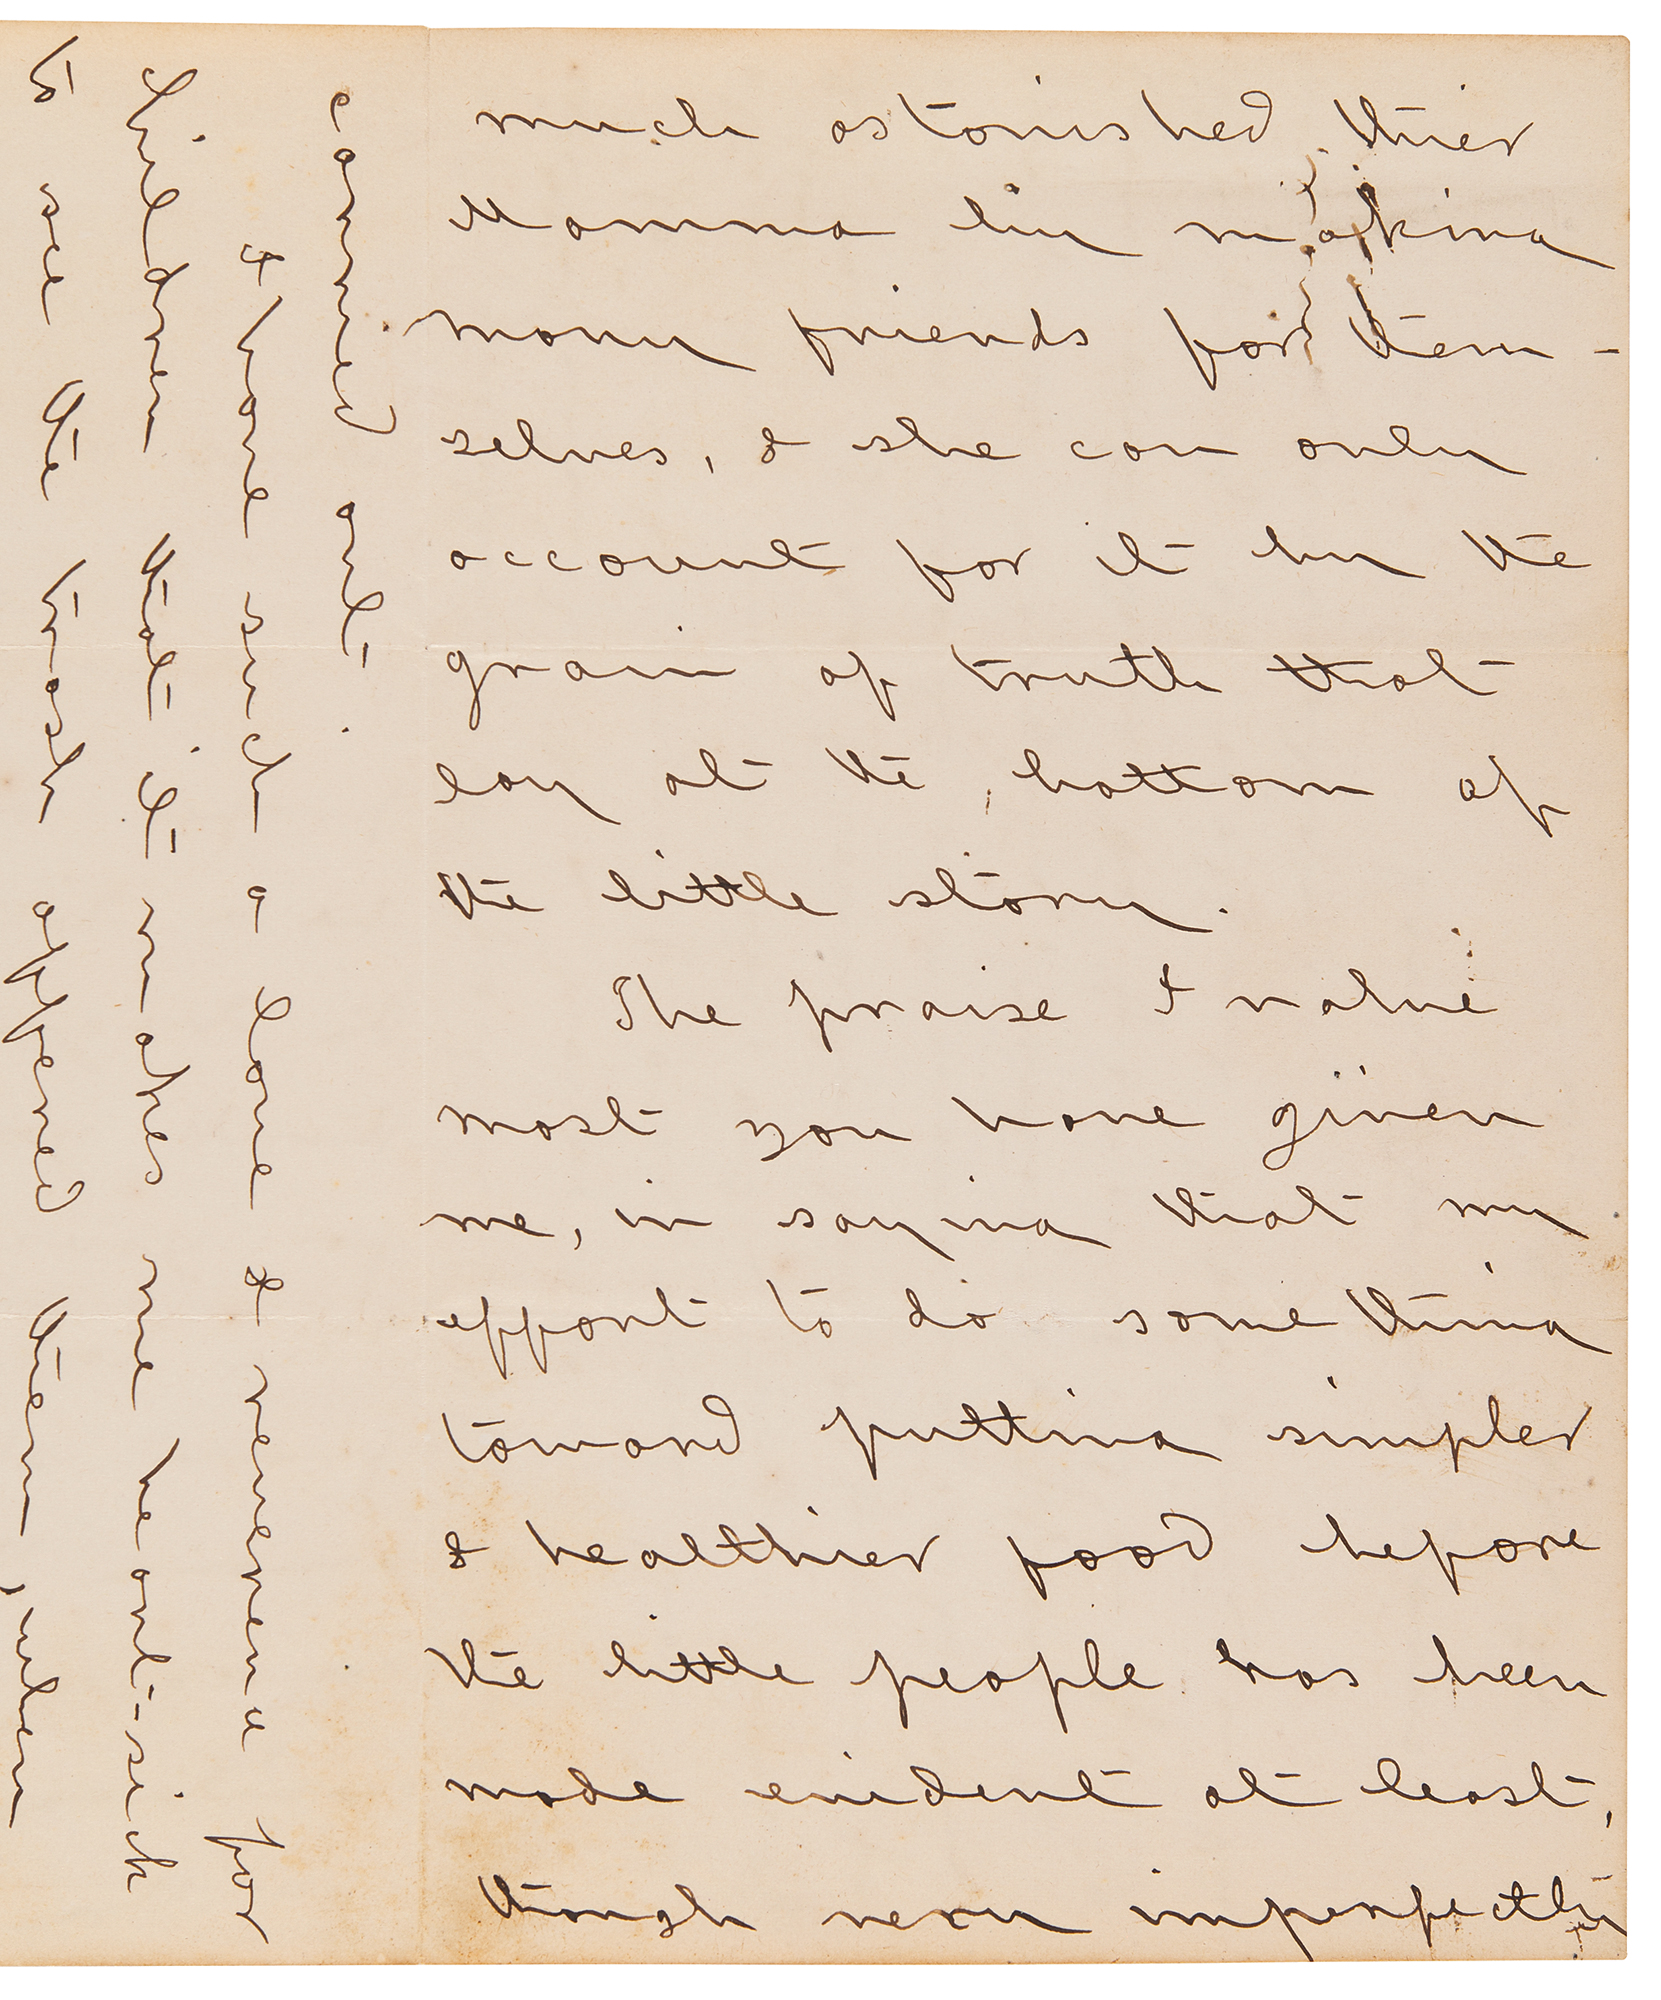 much astonished thier
Mamma by making
many friends for them-
selves, & she can only
account for it by the
grain of truth that
lay at the bottom of
the little story.
The praise I value
most you have given
me, in saying that my
effort to do something
toward putting simpler
& healthier food before
the little people has been
made evident at least,
though very imperfectly
carried out.
I have such a love & reverence for
children that it makes me heart-sick
to see the trash offered them, when